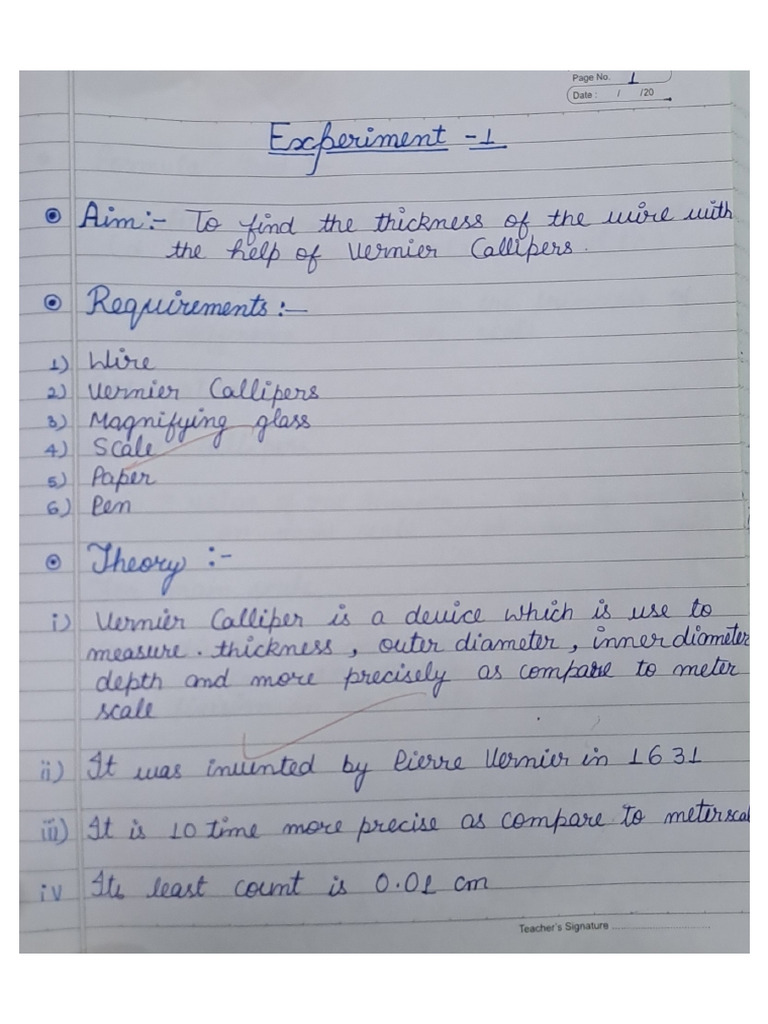 Page No. 1
Date : / /20
Experiment -1
Aim:- To find the thickness of the wire with
the help of Vernier Callipers.
Requirements:-
1) Wire
2) Vernier Callipers
3) Magnifying glass
4) Scale
5) Paper
6) Pen
Theory :-
i) Vernier Calliper is a device which is use to
measure. thickness, outer diameter, inner diameter
depth and more precisely as compare to meter
scale
ii) It was invented by Pierre Vernier in 1631
iii) It is 10 time more precise as compare to meterscal
iv Its least count is 0.01 cm
Teacher's Signature